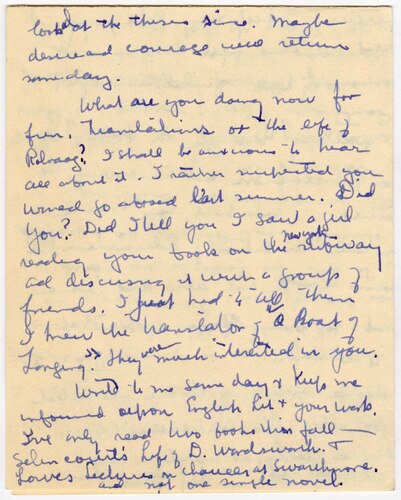 looked at the thesis since. Maybe
desire and courage will return
some day.
What are you doing now for
fun. Translations or the life of
Rolvaag? I shall be anxious to hear
all about it. I rather suspected you
would go abroad last summer. Did
you? Did I tell you I saw a girl
reading your book on the New York subway
and discussing it with a group of
friends. I just had to tell them
I knew the translator of "A Boat of
Longing." They were much interested in you.
Write to me some day & keep me
informed upon English Lit & your work.
I've only read two books this fall —
Selincourt's Life of D. Wordsworth &
Lowes Lectures on Chaucer at Swarthmore.
and not one single novel.